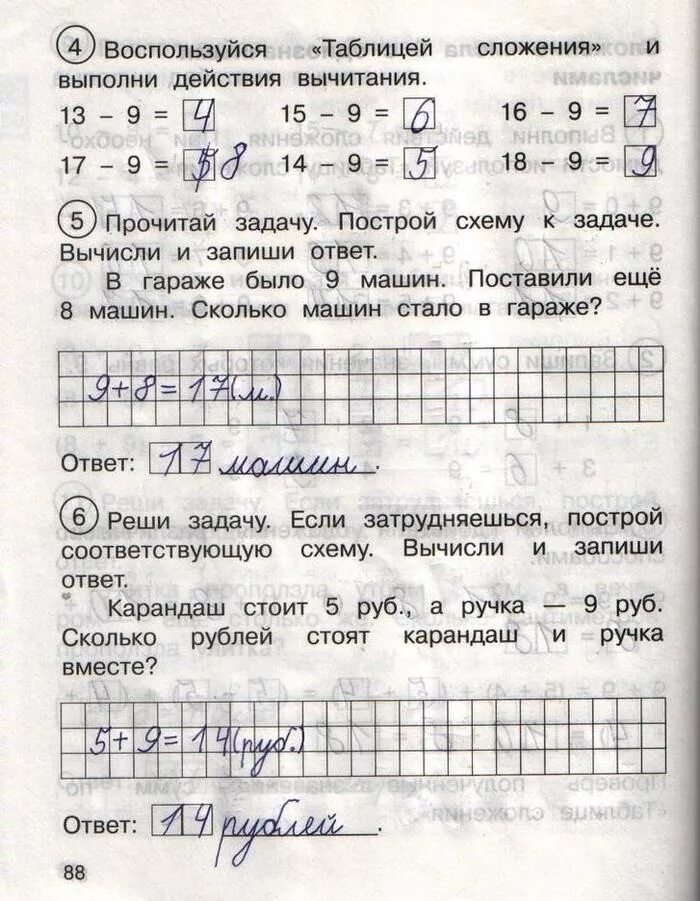 4 Воспользуйся «Таблицей сложения» и
выполни действия вычитания.
13 – 9 = 4 15 – 9 = 6 16 – 9 = 7
17 – 9 = 8 14 – 9 = 5 18 – 9 = 9
5 Прочитай задачу. Построй схему к задаче.
Вычисли и запиши ответ.
В гараже было 9 машин. Поставили ещё
8 машин. Сколько машин стало в гараже?
9+8=17(м.)
Ответ: 17 машин.
6 Реши задачу. Если затрудняешься, построй
соответствующую схему. Вычисли и запиши
ответ.
Карандаш стоит 5 руб., а ручка — 9 руб.
Сколько рублей стоят карандаш и ручка
вместе?
5+9=14(руб.)
Ответ: 14 рублей.
88